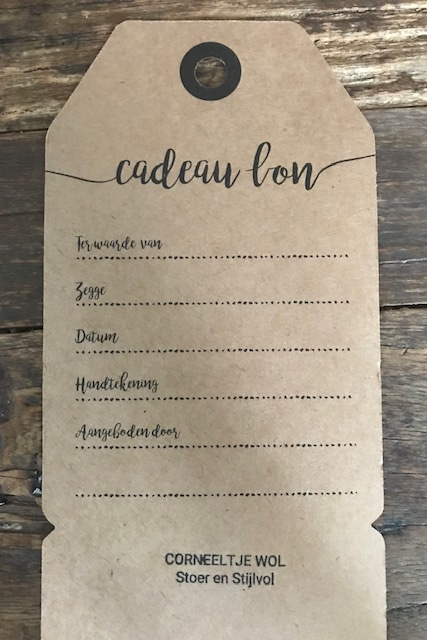 cadeau bon
Ter waarde van
Zegge
Datum
Handtekening
Aangeboden door
CORNEELTJE WOL
Stoer en Stijlvol